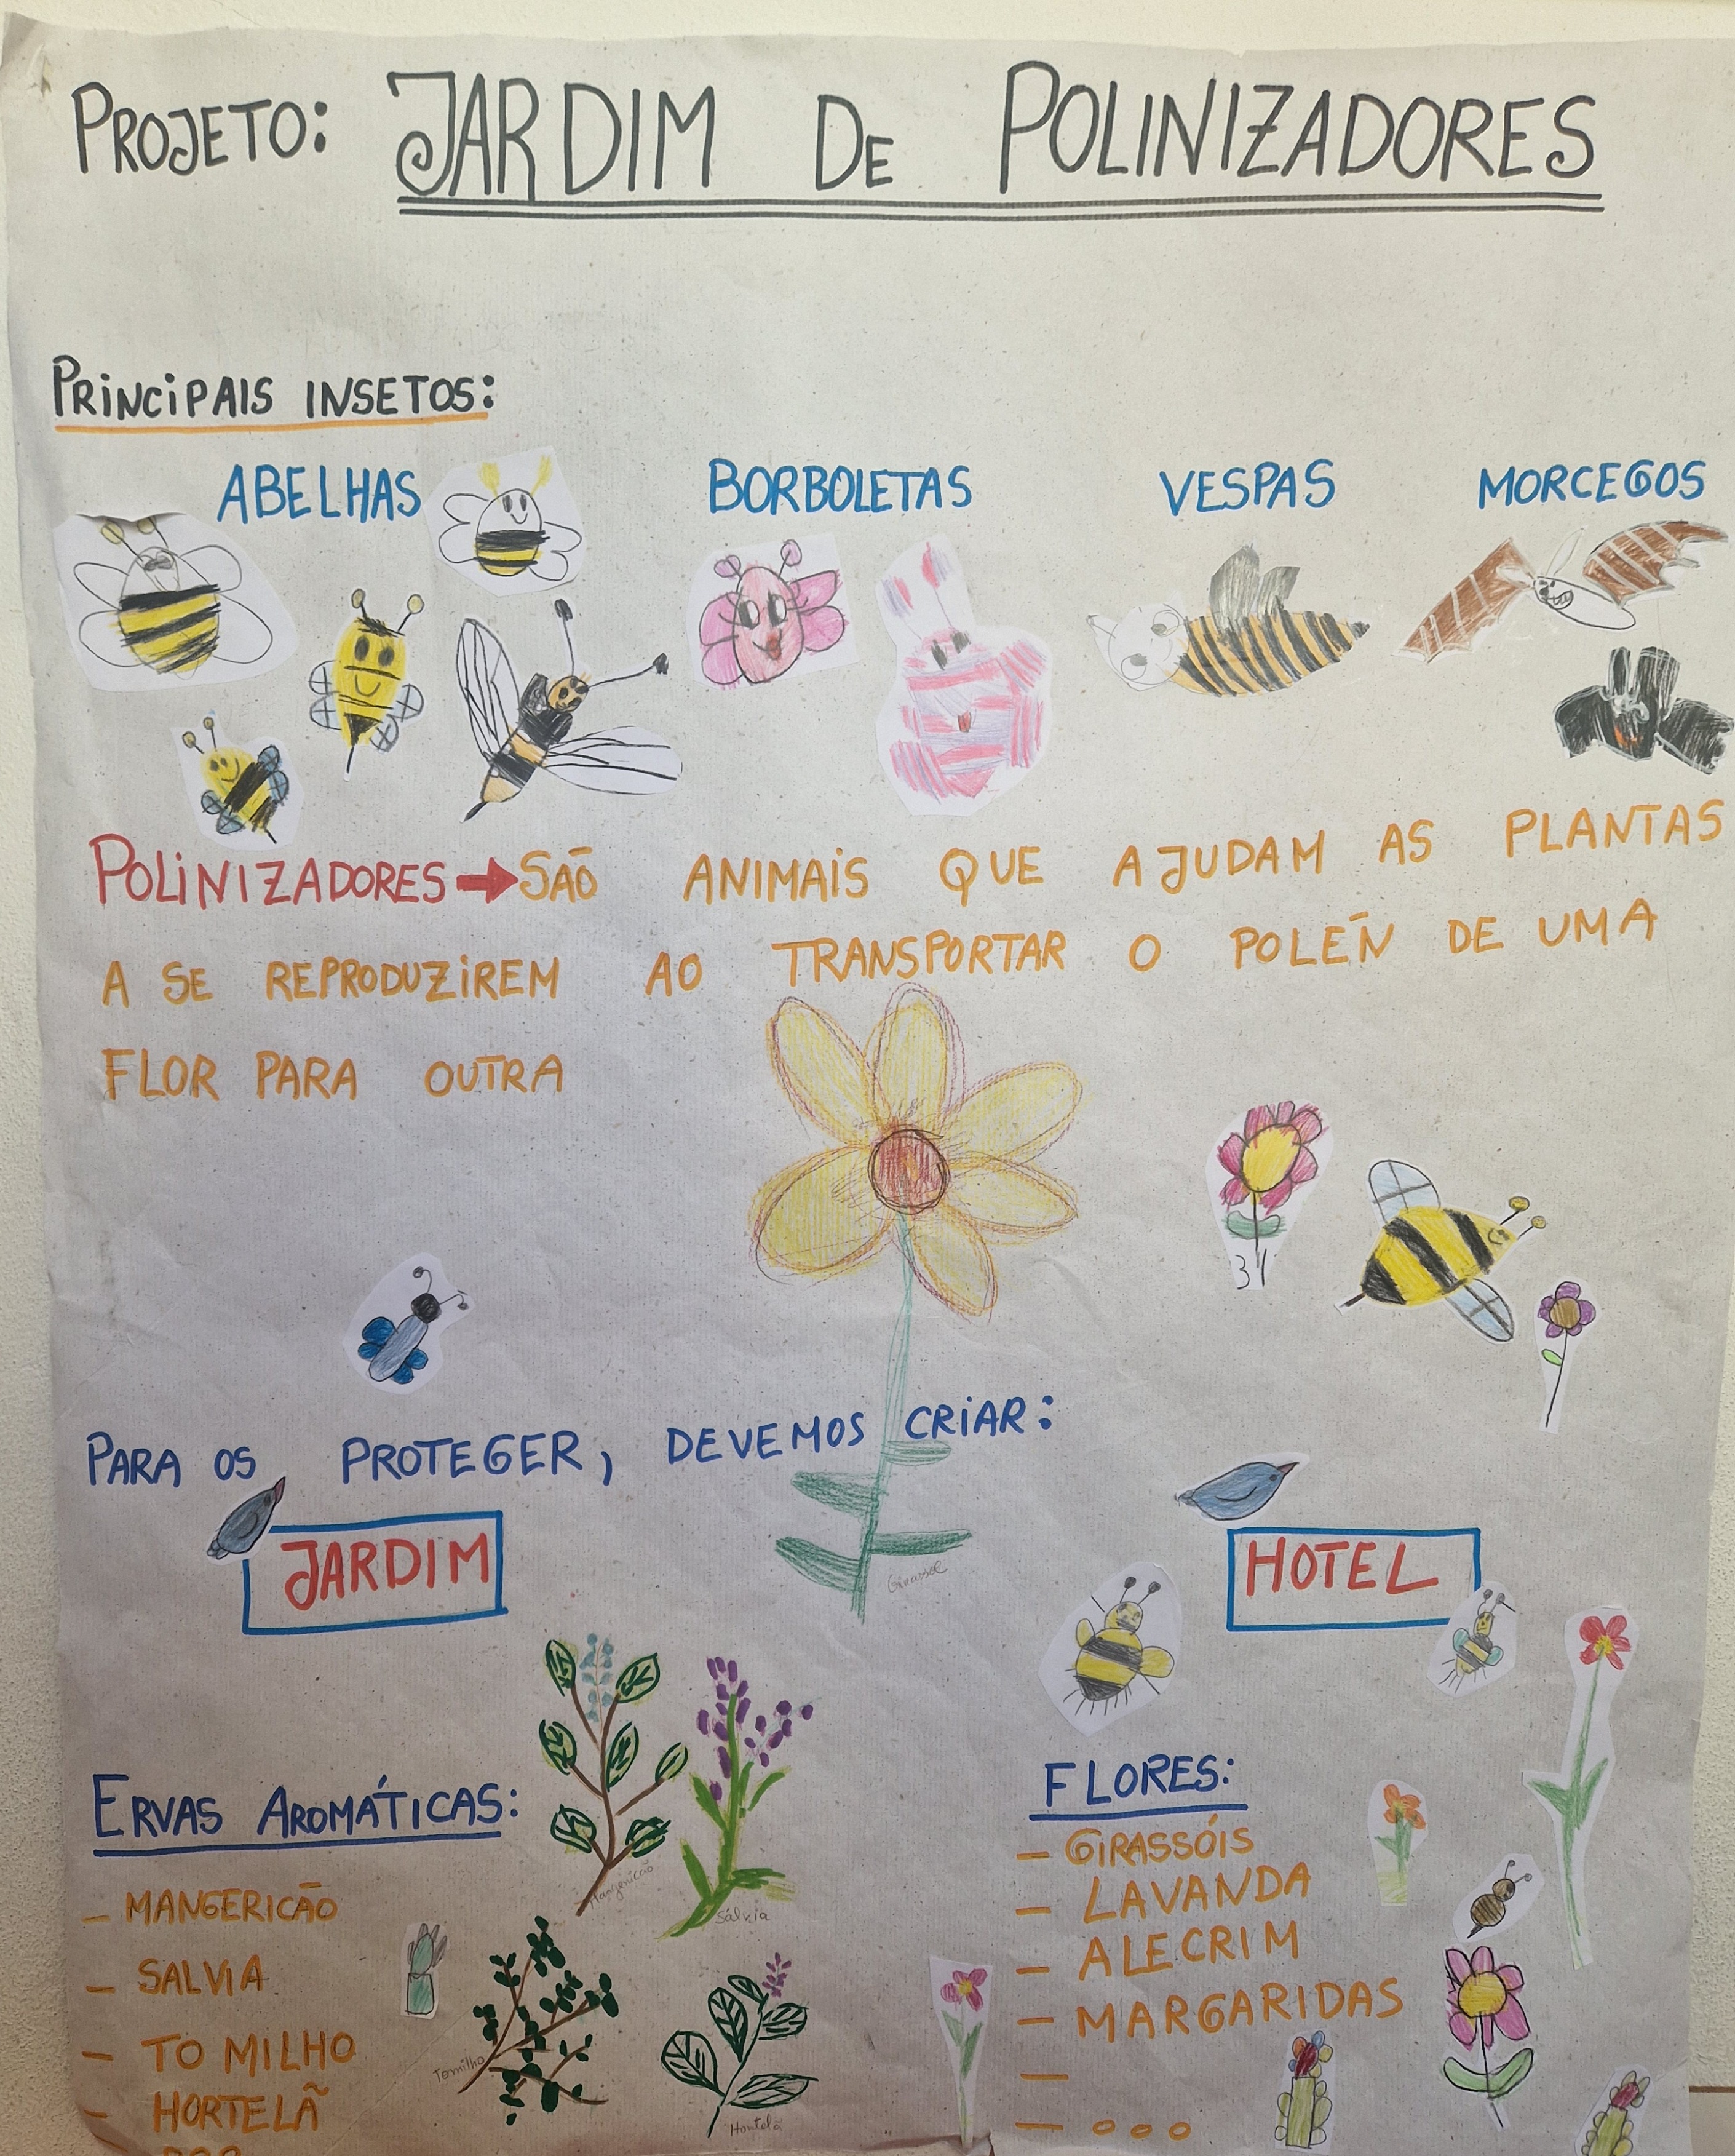 PROJETO: JARDIM DE POLINIZADORES
PRINCIPAIS INSETOS:
ABELHAS BORBOLETAS VESPAS MORCEGOS
POLINIZADORES → SÃO ANIMAIS QUE AJUDAM AS PLANTAS
A SE REPRODUZIREM AO TRANSPORTAR O POLÉN DE UMA
FLOR PARA OUTRA
PARA OS PROTEGER, DEVEMOS CRIAR:
JARDIM
HOTEL
Girassol
ERVAS AROMÁTICAS:
- MANGERICÃO
- SALVIA
- TOMILHO
- HORTELÃ
Mangericão
Sálvia
Tomilho
Hortelã
FLORES:
- GIRASSÓIS
- LAVANDA
- ALECRIM
- MARGARIDAS
-
- ooo